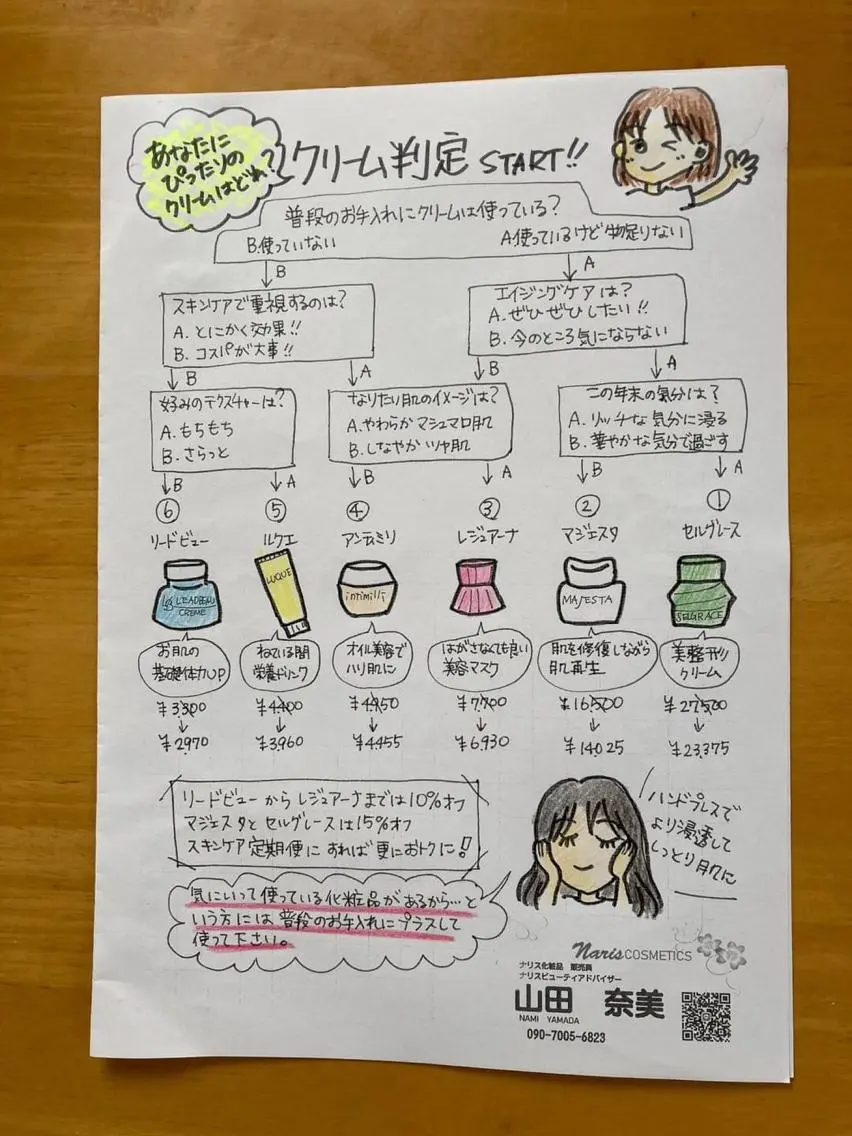 あなたに
ぴったりの
クリームはどれ?
クリーム判定 START!!
普段のお手入れにクリームは使っている?
B.使っていない
A.使っているけど物足りない
B
A
スキンケアで重視するのは?
A. とにかく効果!!
B. コスパが大事!!
エイジングケアは?
A. ぜひぜひしたい!!
B. 今のところ気にならない
B
A
B
A
好みのテクスチャーは?
A. もちもち
B. さらっと
なりたい肌のイメージは?
A. やわらかマシュマロ肌
B. しなやかツヤ肌
この年末の気分は?
A. リッチな気分に浸る
B. 華やかな気分で過ごす
B
A
B
A
B
A
⑥
⑤
④
③
②
①
リードビュー
ルクエ
アンティミリ
レジュアーナ
マジェスタ
セルグレース
LEADBEAU
CREME
LUQUE
intimilli
MAJESTA
SELGRACE
お肌の
基礎体力UP
ねている間
栄養ドリンク
オイル美容で
ハリ肌に
はがさなくても良い
美容マスク
肌を修復しながら
肌再生
美整形クリーム
¥3300
¥4400
¥4950
¥7700
¥16500
¥27500
¥2970
¥3960
¥4455
¥6930
¥14025
¥23375
リードビューからレジュアーナまでは10%オフ
マジェスタとセルグレースは15%オフ
スキンケア定期便にすれば更におトクに!!
ハンドプレスで
より浸透して
しっとり肌に
気にいって使っている化粧品があるから…と
いう方には普段のお手入れにプラスして
使って下さい。
Naris COSMETICS
ナリス化粧品 販売員
ナリスビューティアドバイザー
山田 奈美
NAMI YAMADA
090-7005-6823